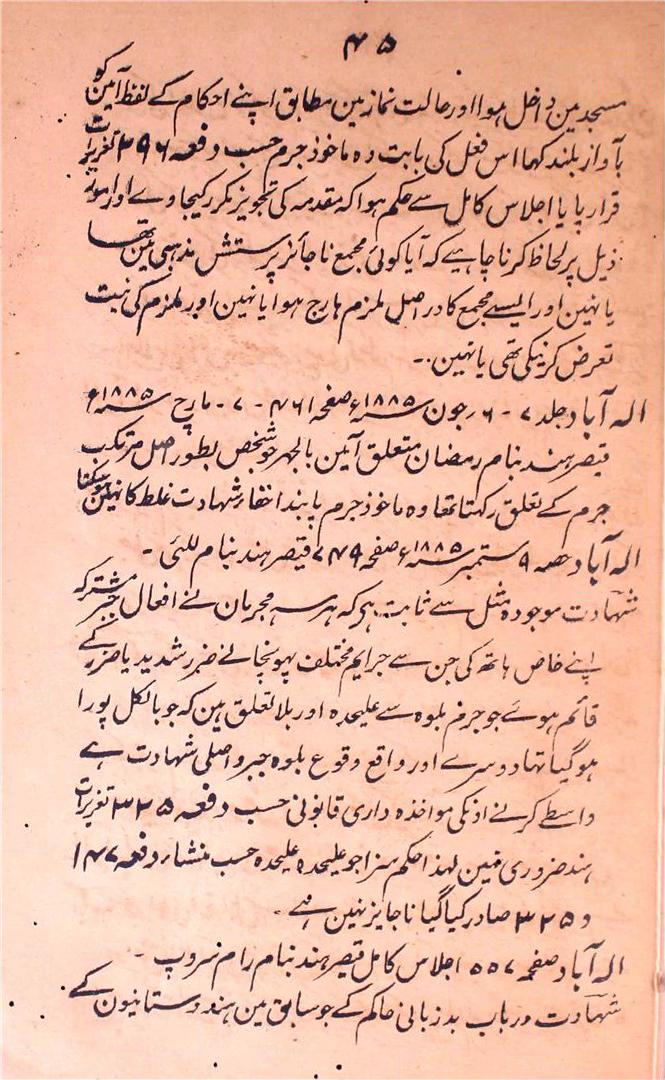 ۴۵
مسجد مین داخل ہوا اور حالت نماز مین مطابق اپنے احکام کے لفظ آمین کو
بآواز بلند کہا اس فعل کی بابت وہ ماخوذ جرم حسب دفعہ ۳۹۶ تعزیرات
قرار پایا اجلاس کامل سے حکم ہوا کہ مقدمہ کی تجویز مکرر کیجاوے اور امور
ذیل پر لحاظ کرنا چاہیے کہ آیا کوئی مجمع ناجائز پرستش مذہبی مین تھا
یا نہین اور ایسے مجمع کا دراصل ملزم ہارج ہوا یا نہین اور ملزم کی نیت
تعرض کرنیکی تھی یا نہین۔
الہ آباد جلد ۷ - ۶ رجون سنہ ۱۸۸۵ع صفحہ ۴۶۱ - ۷ - مارچ سنہ ۱۸۸۵ع
قیصر ہند بنام رمضان متعلق آمین بالجہر جو شخص بطور اصل مرتکب
جرم کے تعلق رکہتا تھا وہ ماخوذ جرم پابند اخفار شہادت غلط کا نہین ہوسکتا
الہ آباد حصہ ۹ ستمبر سنہ ۱۸۸۵ع صفحہ ۷۴۹ قیصر ہند بنام للئی -
شہادت موجودہ مثل سے ثابت ہی کہ ہر سہ مجرمان نے افعال جبر مشترکہ
اپنے خاص ہاتھ کی جن سے جرایم مختلف پہونچانے ضرر شدید یا ضرر کے
قائم ہوئے جو جرم بلوہ سے علیحدہ اور بلا تعلق ہین کہ جو بالکل پورا
ہوگیا تہا دوسرے اور واقع وقوع بلوہ جبر و اصلی شہادت ہے
واسطے کرنے اونکی مواخذہ داری قانونی حسب دفعہ ۳۲۵ تعزیرات
ہند ضروری نہین لہذا حکم سزا جو علیحدہ علیحدہ حسب منشار دفعہ ۱۴۷
و ۳۲۵ صادر کیا گیا ناجایز نہین ہے -
الہ آباد صفحہ ۵۵۷ اجلاس کامل قیصر ہند بنام رام سروپ -
شہادت در باب بد زبانی حاکم کے جو سابق مین ہندوستانیون کے